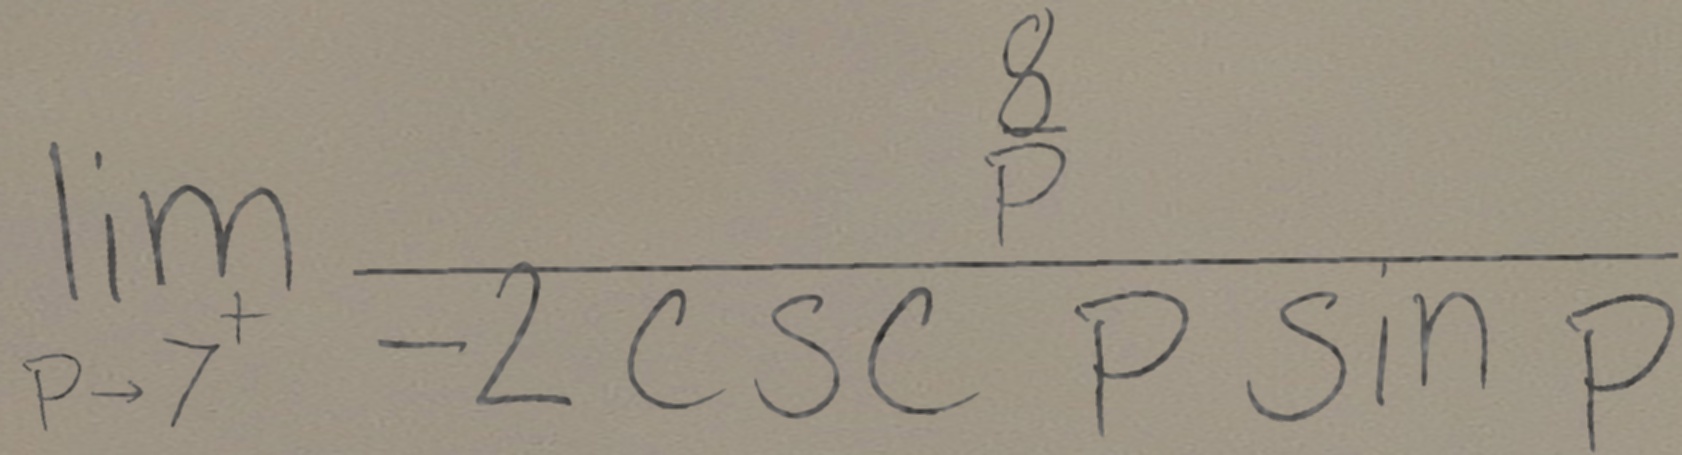 \lim_{p \to 7^+} \frac{\frac{8}{p}}{-2 \csc p \sin p}